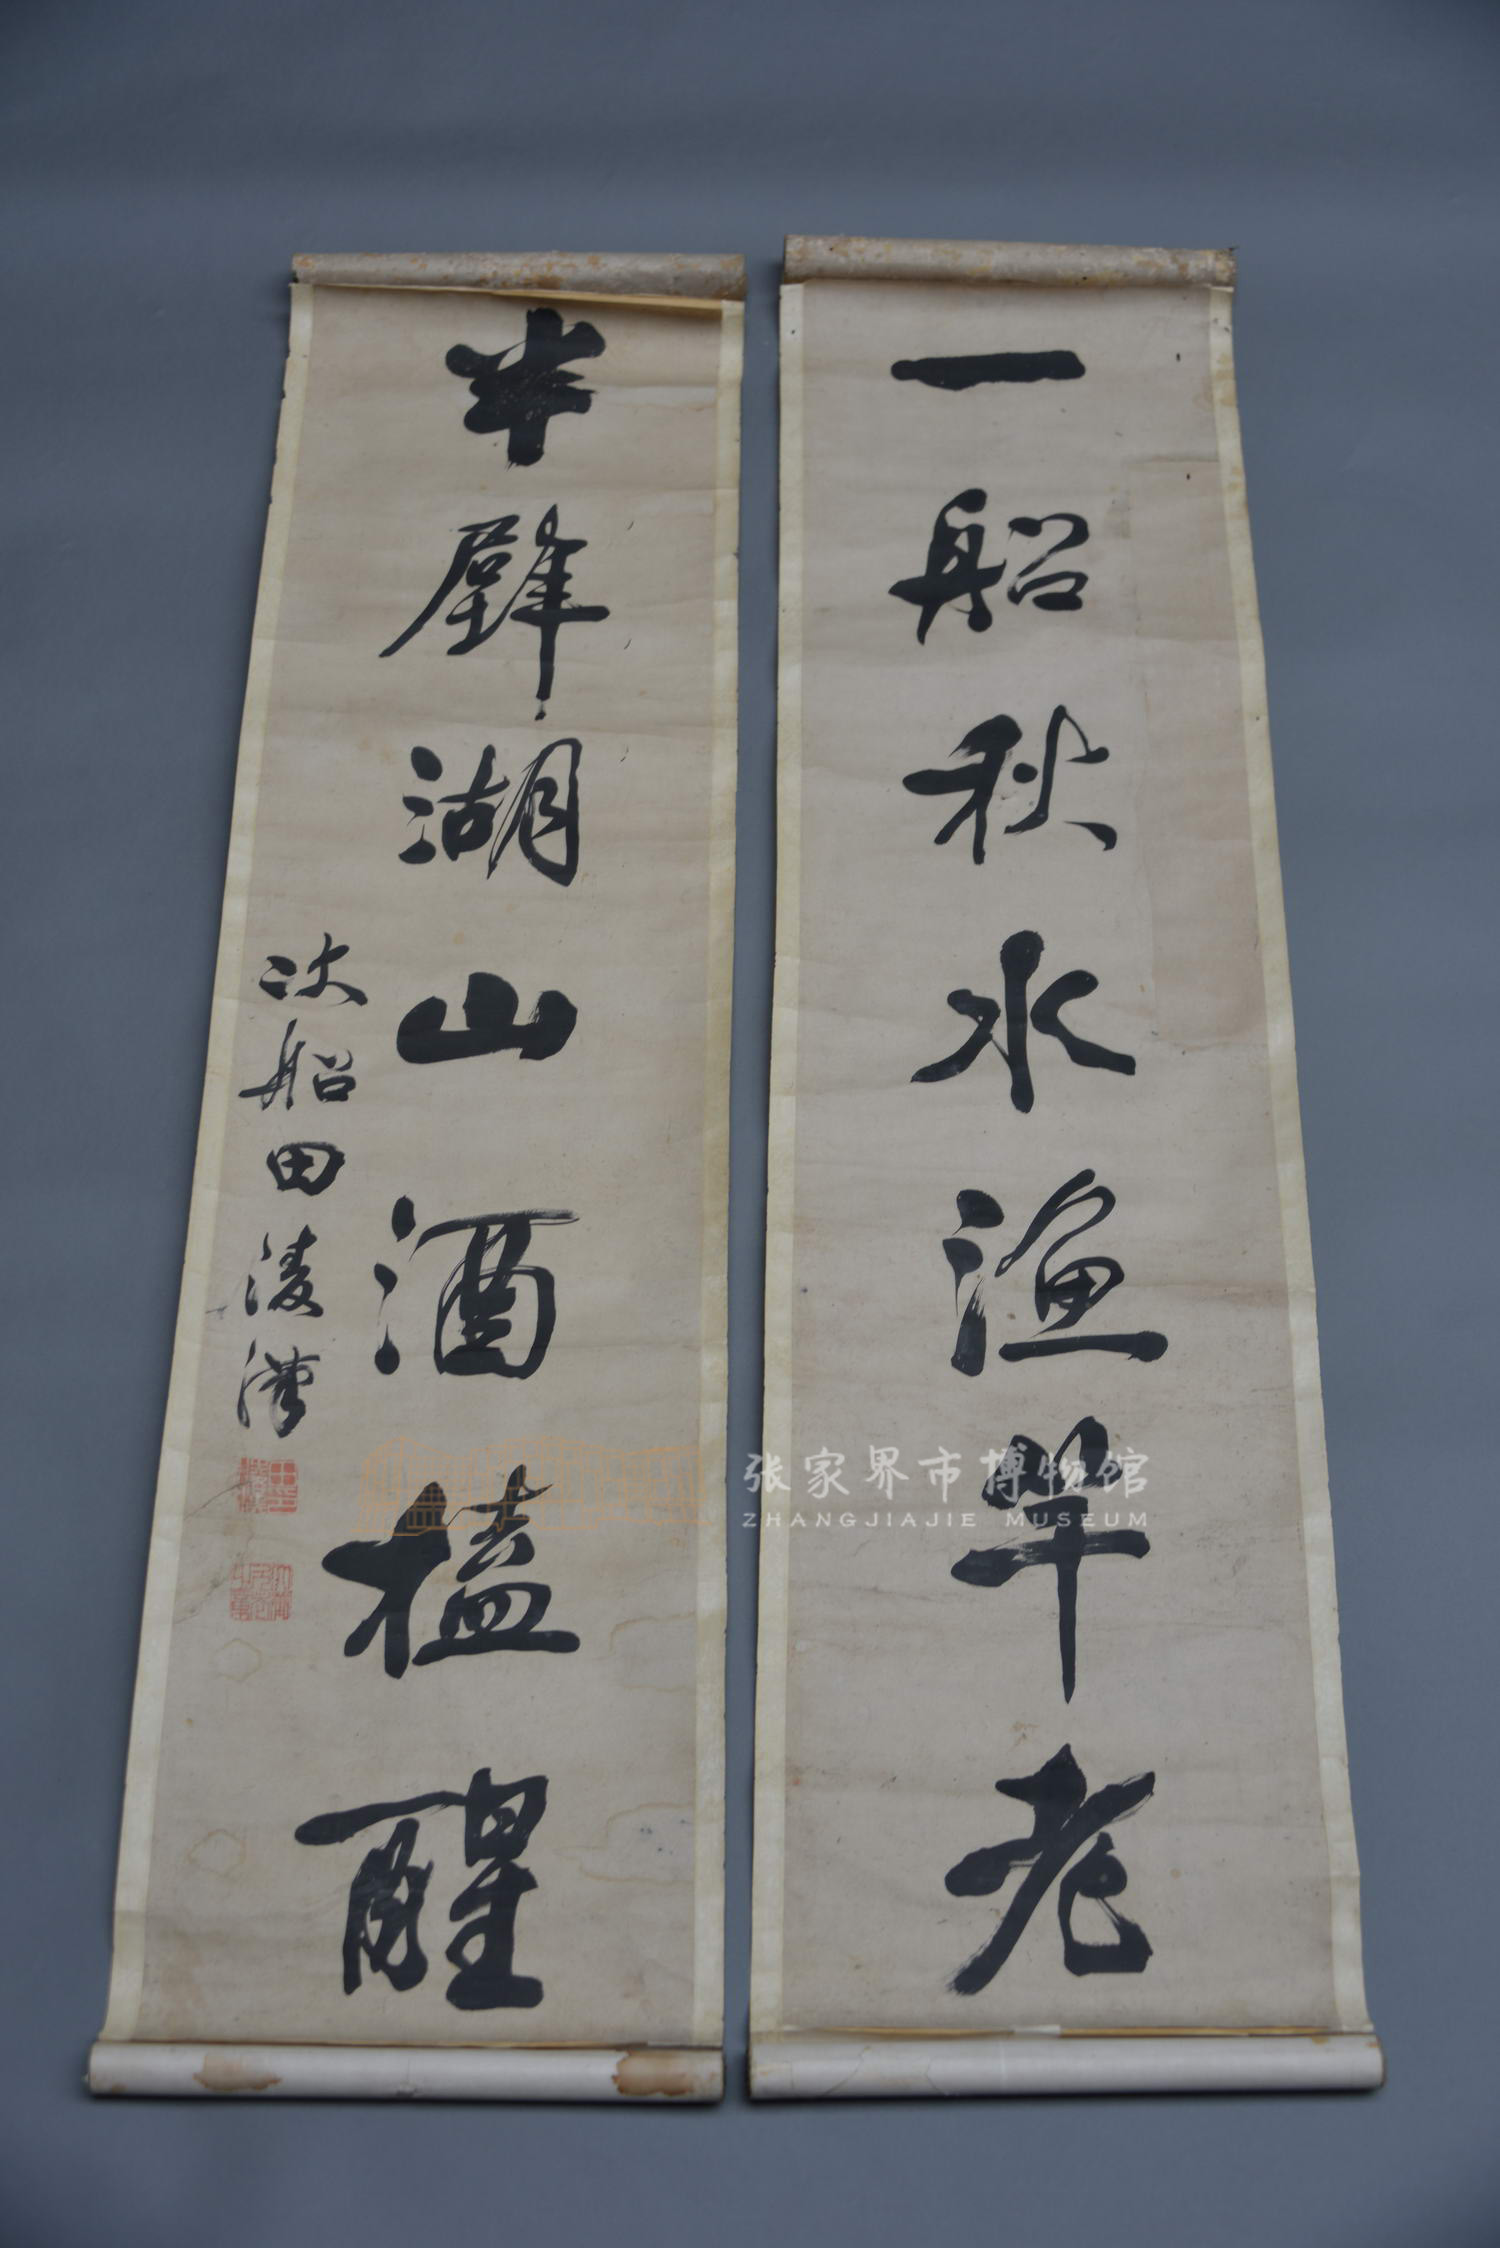 一船秋水渔竿老
半壁湖山酒榼醒
次船田淩漢
张家界市博物馆
ZHANGJIAJIE MUSEUM